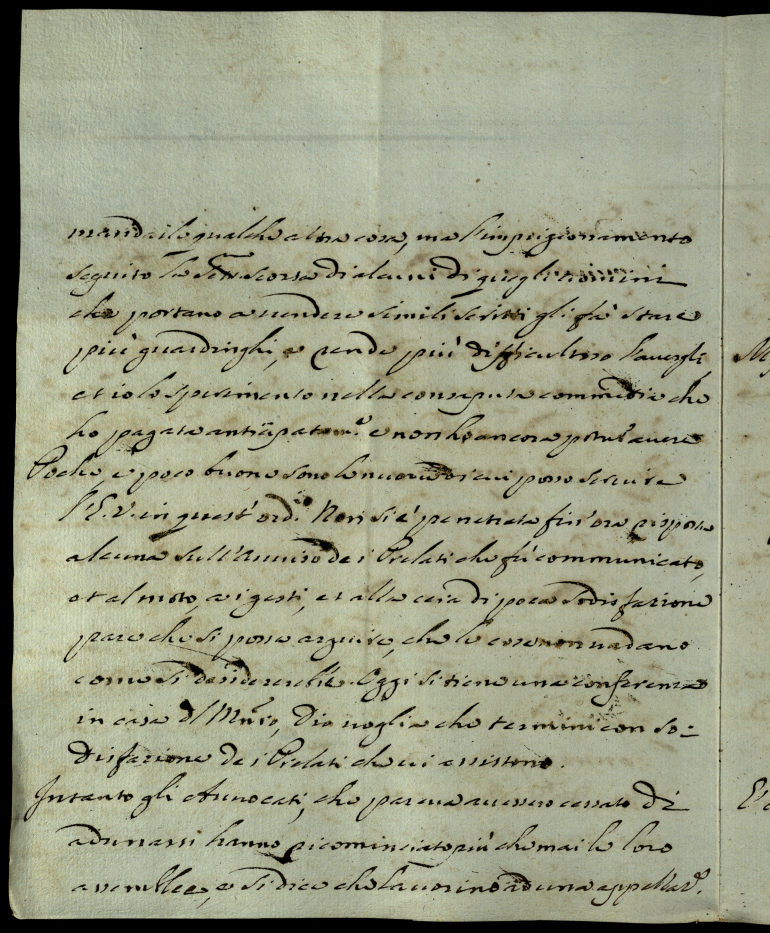 mandarle qualche altra cosa, ma l'imprigionamento
seguito la Sett.ª scorsa di alcuni di quegli uomini
che portano a vendere simili scritti gli fa' stare
più guardinghi, e rende più difficultoso l'avergli
et io lo sperimento nella consaputa commedia che
ho pagata anticipatam.e e non ho ancora potut' avere
Poche, e poco buone sono le nuove di cui posso servire
l'E.V. in quest' ord.º Non si è penetrata fin' ora risposta
alcuna sull' Avviso de i Prelati che fù communicato,
et al moto, a i gesti, et alla cera di poca sodisfazione
pare che si possa arguire, che le cose non vadano
come si desidererebbe. Oggi si tiene una conferenza
in casa d'l Mn̄ro, Dio voglia che termini con so=
disfazione de i Prelati che vi assistono.
Intanto gli Avvocati, che pareva avessero cessato di
adunarsi hanno ricominciato più che mai le loro
assemblee, e si dice che lavorino ad una appellaz.e
My